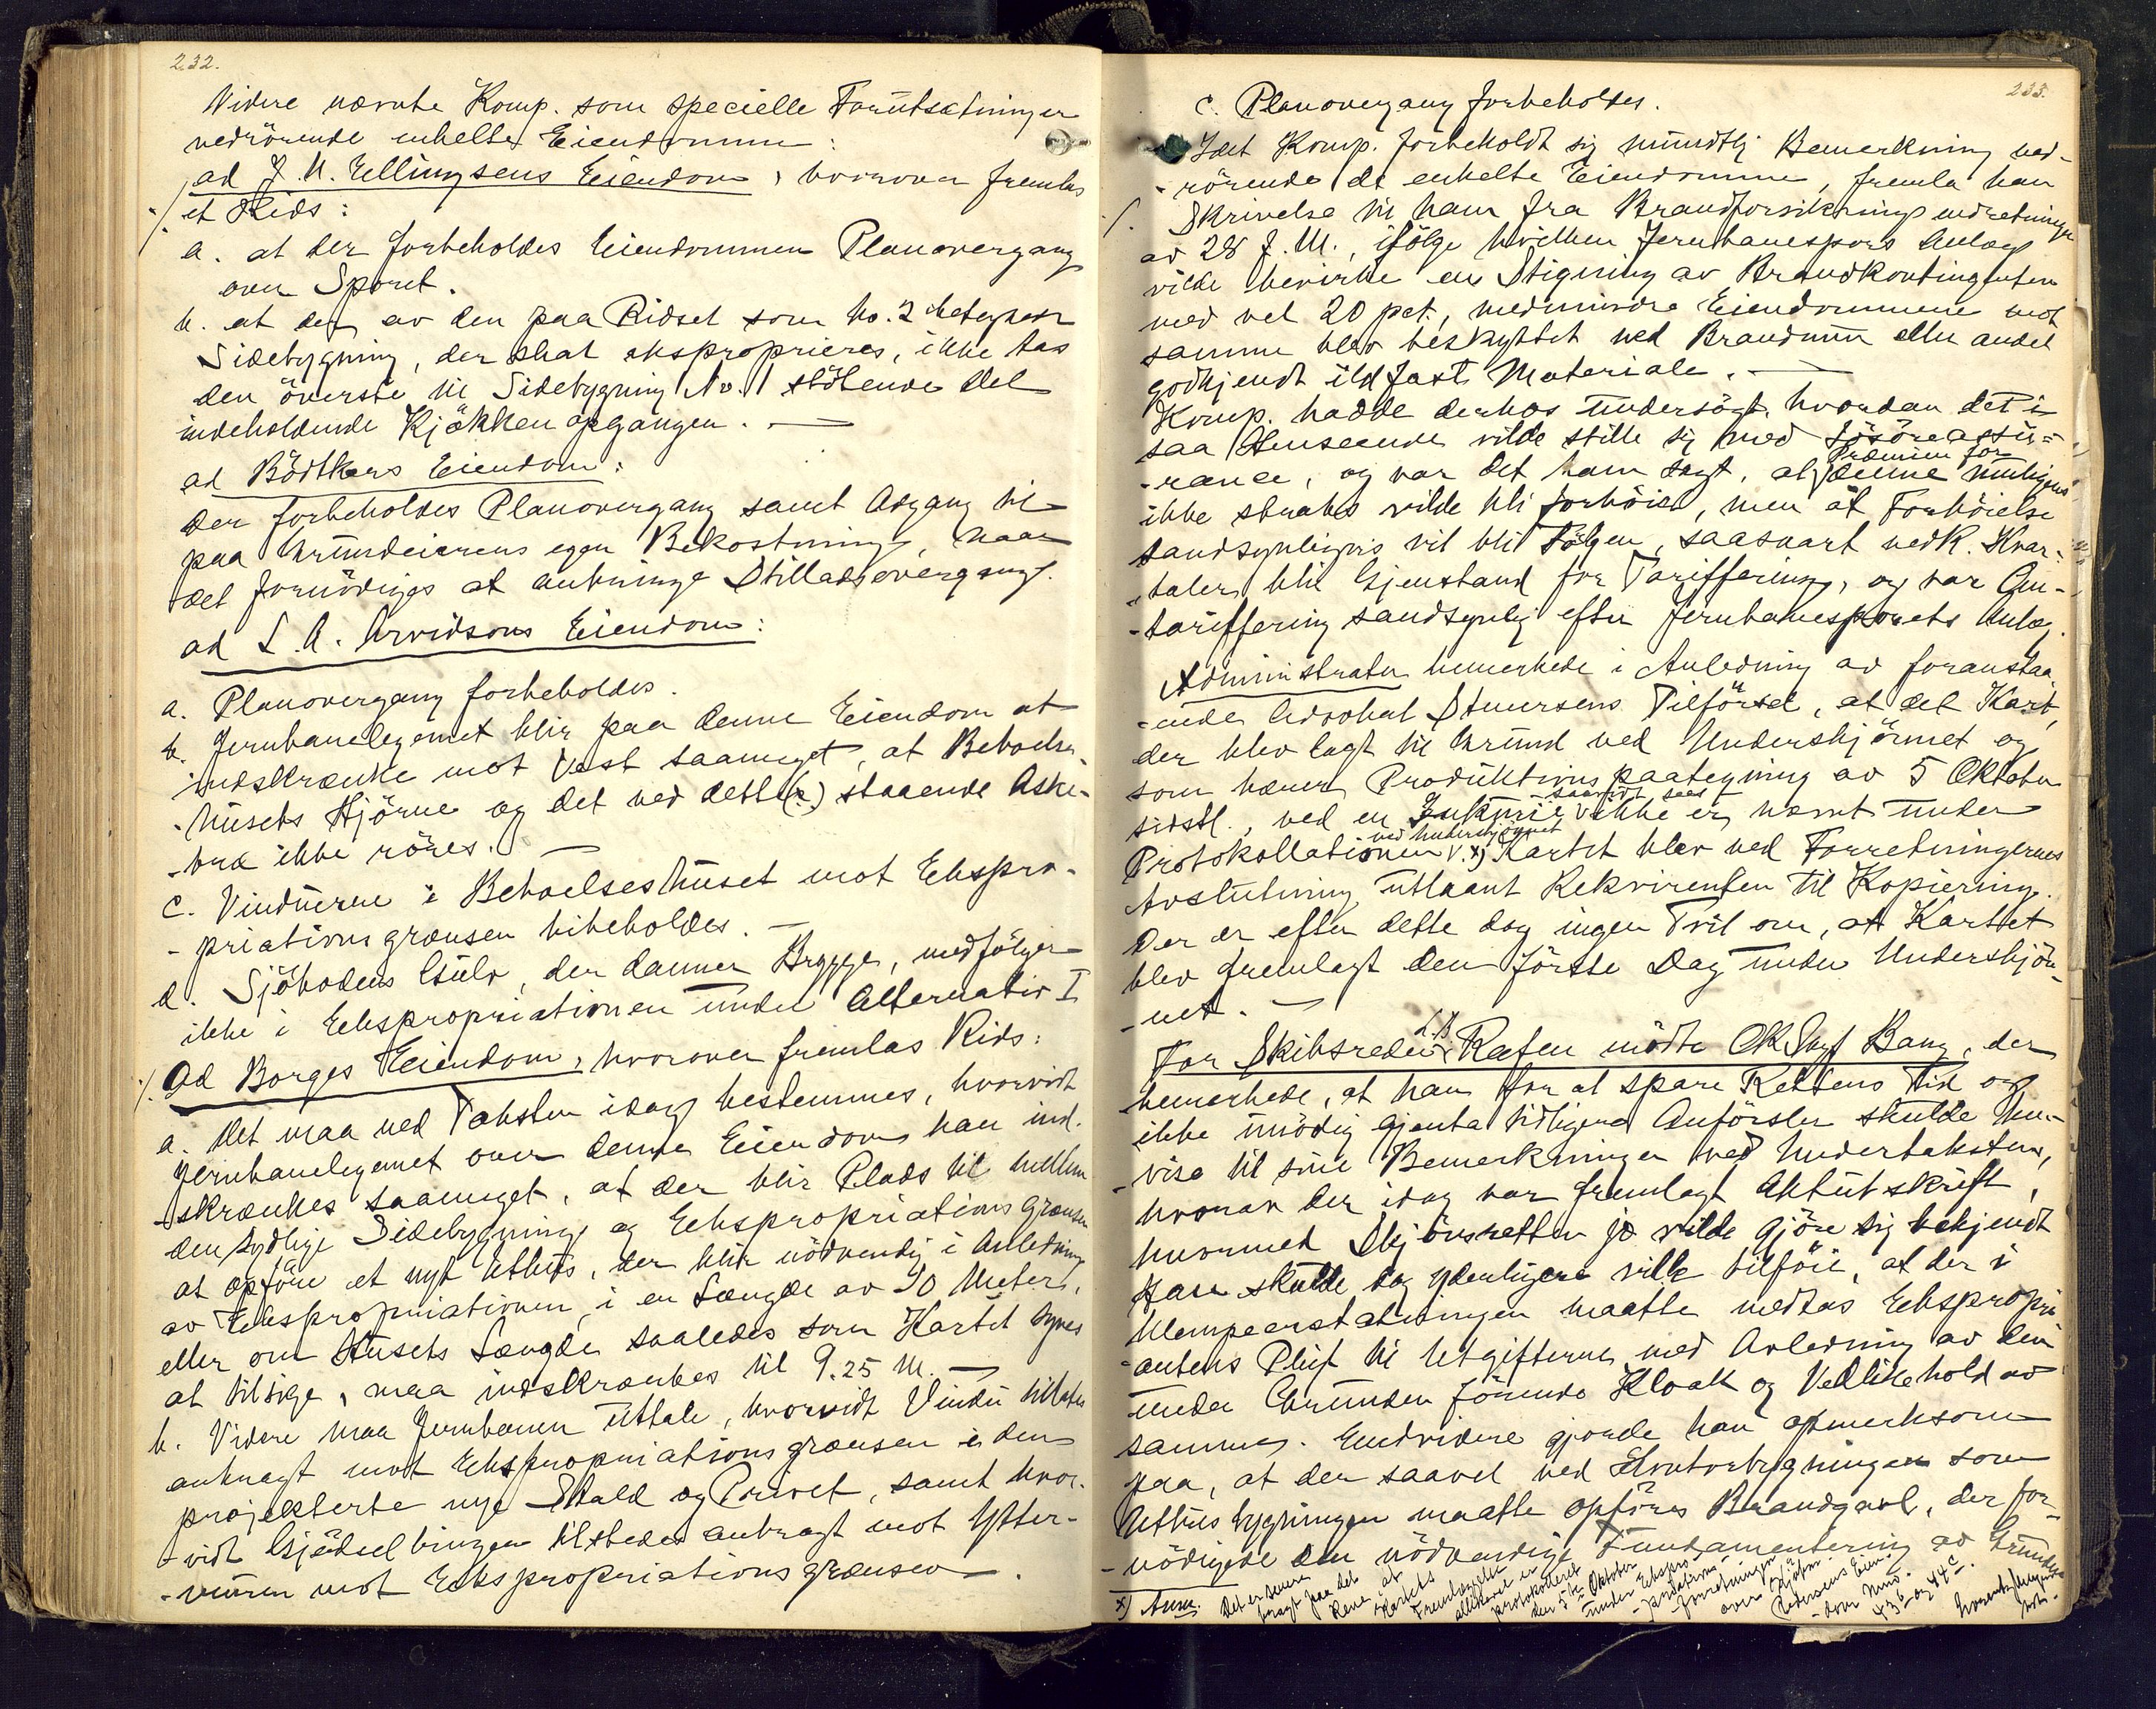 232.
Videre nævnte Komp. som specielle Forutsætninger
vedrörende enkelte Eiendomme:
ad J. M. Ellingsens Eiendom, hvorover fremlas
·/. et Rids:
a. at der forbeholdes Eiendommen Planovergang
over Sporet.
b. at der av den paa Ridset som No. 2 betegnede
Sidebygning, der skal eksproprieres, ikke tas
den överste til Sidebygning No. 1 stötende Del
indeholdende Kjökkenopgangen. —
ad Bödtkers Eiendom:
der forbeholdes Planovergang samt Adgang til
paa Grundeierens egen Bekostning, naar
det fornödiges at anbringe Stilladsovergang.
ad L. A. Arvidsons Eiendom:
a. Planovergang forbeholdes.
b. Jernbanelegemet blir paa denne Eiendom at
indskrænke mot Vest saameget, at Beboelses-
-husets Hjörne og det ved dette (?) staaende Aske-
-træ ikke röres. —
c. Vinduerne i Beboelseshuset mot Ekspro-
-priationsgrænsen bibeholdes. —
d. Sjöbodens Gulv, der danner Brygge, medfölger
ikke i Ekspropriationen under Alternativ I
·/. Ad Borges Eiendom, hvorover fremlas Rids:
a. Det maa ved Taksten idag bestemmes, hvorvidt
Jernbanelegemet over denne Eiendom kan ind-
-skrænkes saameget, at der blir Plads til mellem
den sydlige Sidebygning og Ekspropriationsgrænsen
at opföre et nyt Uthus, der blir nödvendig i Anledning
av Ekspropriationen, i en Længde av 10 Meter,
eller om Husets Længde saaledes som Kartet synes
at tilsige, maa indskrænkes til 9.25 M. —
b. Videre maa Jernbanen uttale, hvorvidt Vindu tillates
anbragt mot Ekspropriationsgrænsen i den
projekterte nye Stald og Privet, samt hvor-
-vidt Gjödselbingen tilstedes anbragt mot Ytter-
-muren mot Ekspropriationsgrænsen.
233.
c. Planovergang forbeholdes.
Idet Komp. forbeholdt sig mundtlig Bemerkning ved-
-rörende de enkelte Eiendomme, fremla han
·/. Skrivelse til ham fra Brandforsikringsindretningen
av 28 f. M., ifölge hvilken Jernbanespors Anlæg
vilde bevirke en Stigning av Brandkontingenten
med vel 20 pct., medmindre Eiendommene mot
samme blev beskyttet ved Brandmur eller andet
godkjendt ildfast Materiale. —
Komp. hadde derhos undersögt, hvordan det i
saa Henseende vilde stille sig med Lösöreassu-
-rance, og var det ham sagt, at Præmien for denne muligens
ikke straks vilde bli forhöiet, men at Forhöielse
sandsynligvis vil bli Fölgen, saasnart vedk. Kvar-
-taler blir Gjenstand for Tariffering, og var Om-
-tariffering sandsynlig efter Jernbanesporets Anlæg.
Administrator bemerkede i Anledning av foranstaa-
-ende Advokat Stenersens Tilförsel, at det Kart,
der blev lagt til Grund ved Underskjönnet og
som bærer Produktionspaategning av 5 Oktober
sidstl., ved en Inkurie saavidt sees ikke er nævnt under
Protokollationen ved Underskjönnet V. x) Kartet blev ved Forretningernes
Avslutning utlaant Rekvirenten til Kopiering.
Der er efter dette dog ingen Tvil om, at Kartet
blev fremlagt den förste Dag under Underskjön-
-net. —
For Skibsreder L. B. Rafen mödte OKSagf Bang, der
bemerkede, at han for at spare Rettens Tid og
ikke unödig gjenta tidligere Anförsler skulde hen-
-vise til sine Bemerkninger ved Undertaksten,
hvorav der idag var fremlagt Aktutskrift,
hvormed Skjönsretten jo vilde gjöre sig bekjendt
Han skulde dog yderligere ville tilföie, at der i
Ulempeerstatningen maatte medtas Ekspropri-
-antens Plikt til Utgifterne med Avledning av den
under Grunden förende Kloak og Vedlikehold av
samme. Endvidere gjorde han opmerksom
paa, at der saavel ved Kontorbygningen som
Uthusbygningen maatte opföres Brandgavl, der for-
-nödigede den nödvendige Fundamentering av Grunden
x) Anm. Det er senere
bragt paa det
Rene, at
Kartets
Fremlæggelse
allikevel er
protokolleret
den 5te Oktober
under Ekspro-
-priations-
-forretningen
over Skibsr.
Redersens Eien-
-dom Mno.
436 og 44c.